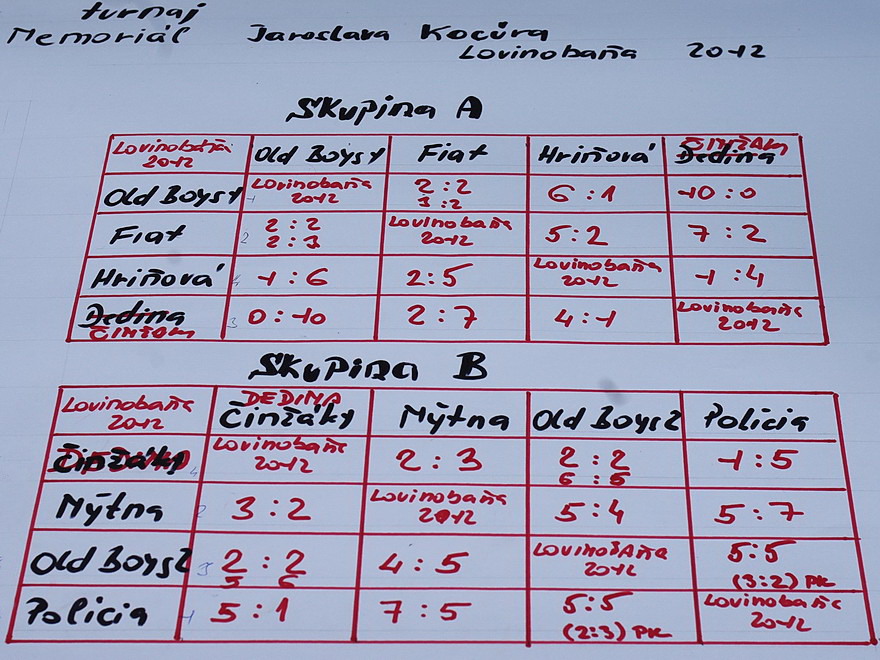 turnaj
Memoriál Jaroslava Kocúra
Lovinobaňa 2012
Skupina A
Lovinobaňa 2012 Old Boys1 Fiat Hriňová Dedina ČINŽÁKY
Old Boys1 Lovinobaňa 2012 2:2 3:2 6:1 10:0
Fiat 2:2 2:3 Lovinobaňa 2012 5:2 7:2
Hriňová 1:6 2:5 Lovinobaňa 2012 1:4
Dedina ČINŽÁKY 0:10 2:7 4:1 Lovinobaňa 2012
Skupina B
Lovinobaňa 2012 DEDINA Činžáky Mýtna Old Boys2 Polícia
Činžáky Lovinobaňa 2012 2:3 2:2 6:5 1:5
Mýtna 3:2 Lovinobaňa 2012 5:4 5:7
Old Boys2 2:2 5 6 4:5 Lovinobaňa 2012 5:5 (3:2) PK
Polícia 5:1 7:5 5:5 (2:3) PK Lovinobaňa 2012